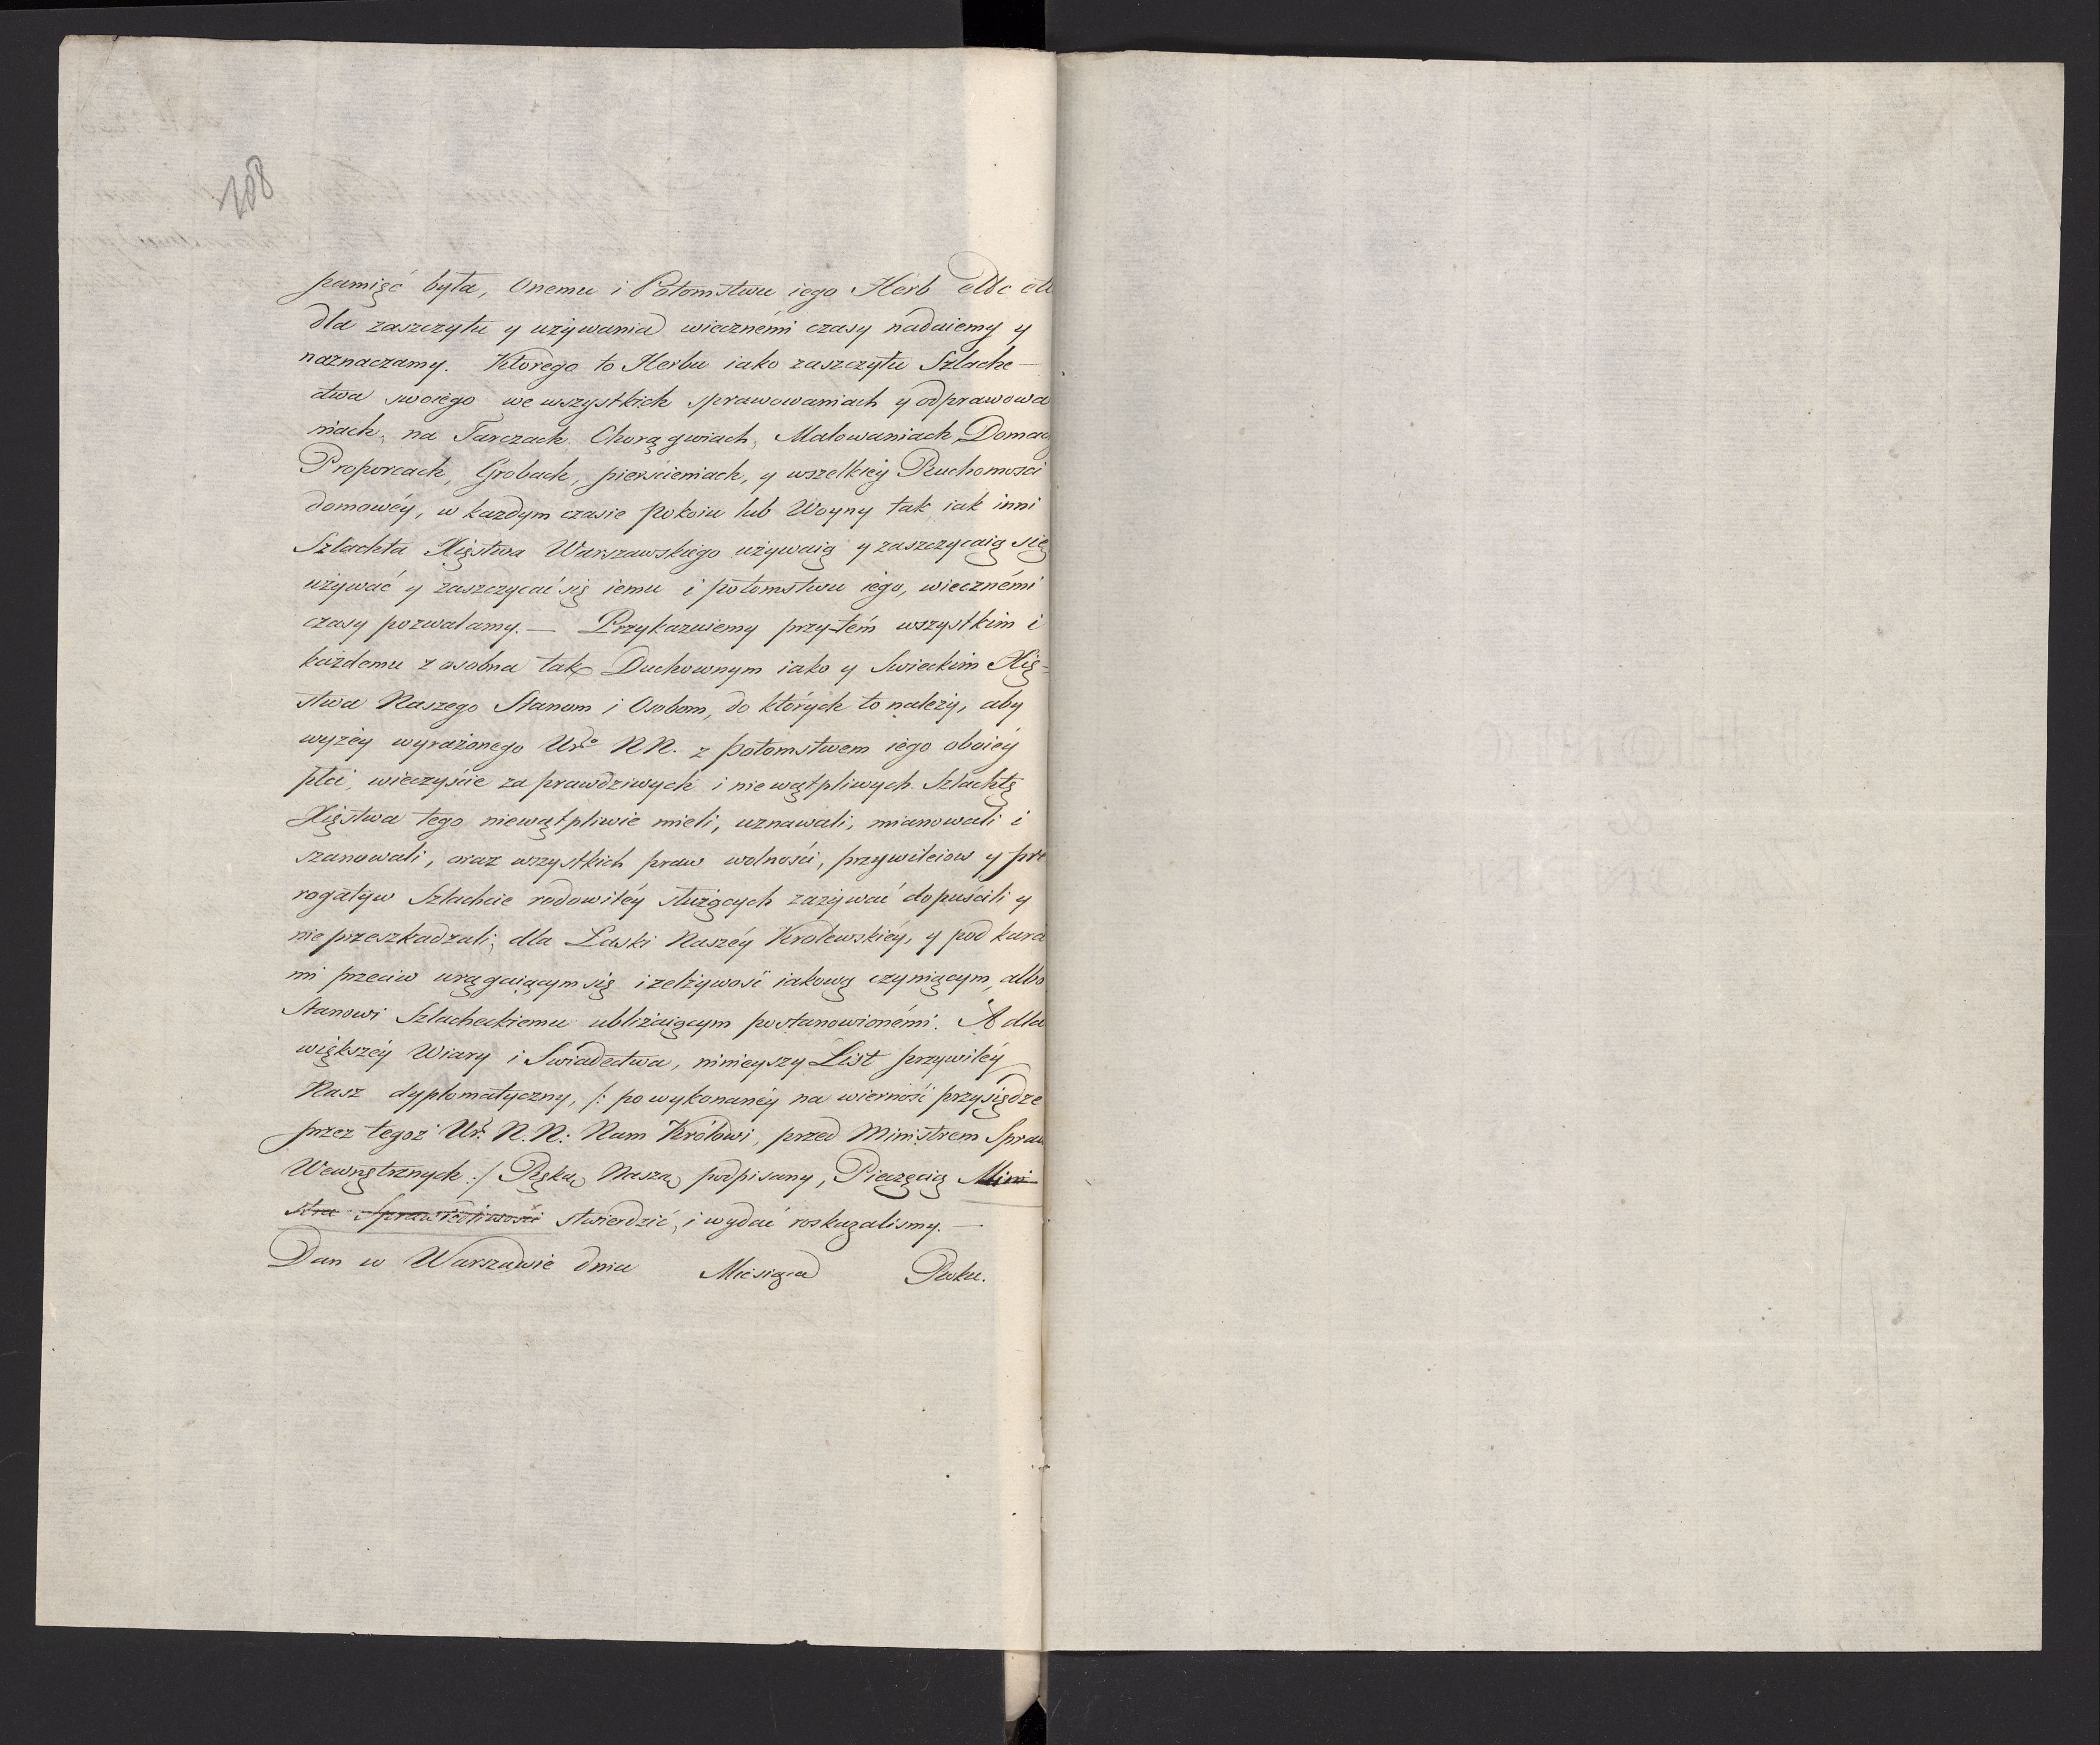 108
pamięć była, Onemu i Potomstwu iego Herb etc etc
dla zaszczytu y używania wiecznémi czasy nadaiemy y
naznaczamy. Którego to Herbu iako zaszczytu Szlache-
ctwa swoiego we wszystkich sprawowaniach y odprawowa
niach, na Tarczach, Chorągwiach, Malowaniach, Domach
Proporcach, Grobach, pierścieniach, y wszelkiéy Ruchomości
domowéy, w każdym czasie pokoiu lub Woyny tak iak inni
Szlachta Xięstwa Warszawskiego używaią y zaszczycaią się
używać y zaszczycać się iemu i potomstwu iego, wiecznémi
czasy pozwalamy. — Przykazuiemy przy-tém wszystkim i
każdemu z osobna tak Duchownym iako y Swieckim Xię-
stwa Naszego Stanom i Osobom, do których to należy, aby
wyżéy wyrażonego Uro NN. z potomstwem iego oboiéy
płci, wieczyście za prawdziwych i niewątpliwych Szlachtę
Xięstwa tego niewątpliwie mieli, uznawali, mianowali i
szanowali, oraz wszystkich praw wolności, przywileiow y pre
rogatyw Szlachcie rodowitéy służących zażywać dopuścili y
nie przeszkadzali, dla Łaski Naszéy Krolewskiéy, y pod kara
mi przeciw urągaiącym się i zelżywość iakową czyniącym, albo
Stanowi Szlacheckiemu ubliżaiącym postanowionémi. A dla
większéy Wiary i Swiadectwa, ninieyszy List przywiléy
Nasz dyplomatyczny, /: po wykonanéy na wierność przysiędze
przez tegoż Ur. N.N: Nam Królowi, przed Ministrem Spraw
Wewnętrznych :/ Ręką Naszą podpisany, Pieczęcią Mini-
stra Sprawiedliwości stwierdzić, i wydać roskazalismy. —
Dan w Warszawie dnia Miesiąca Roku.